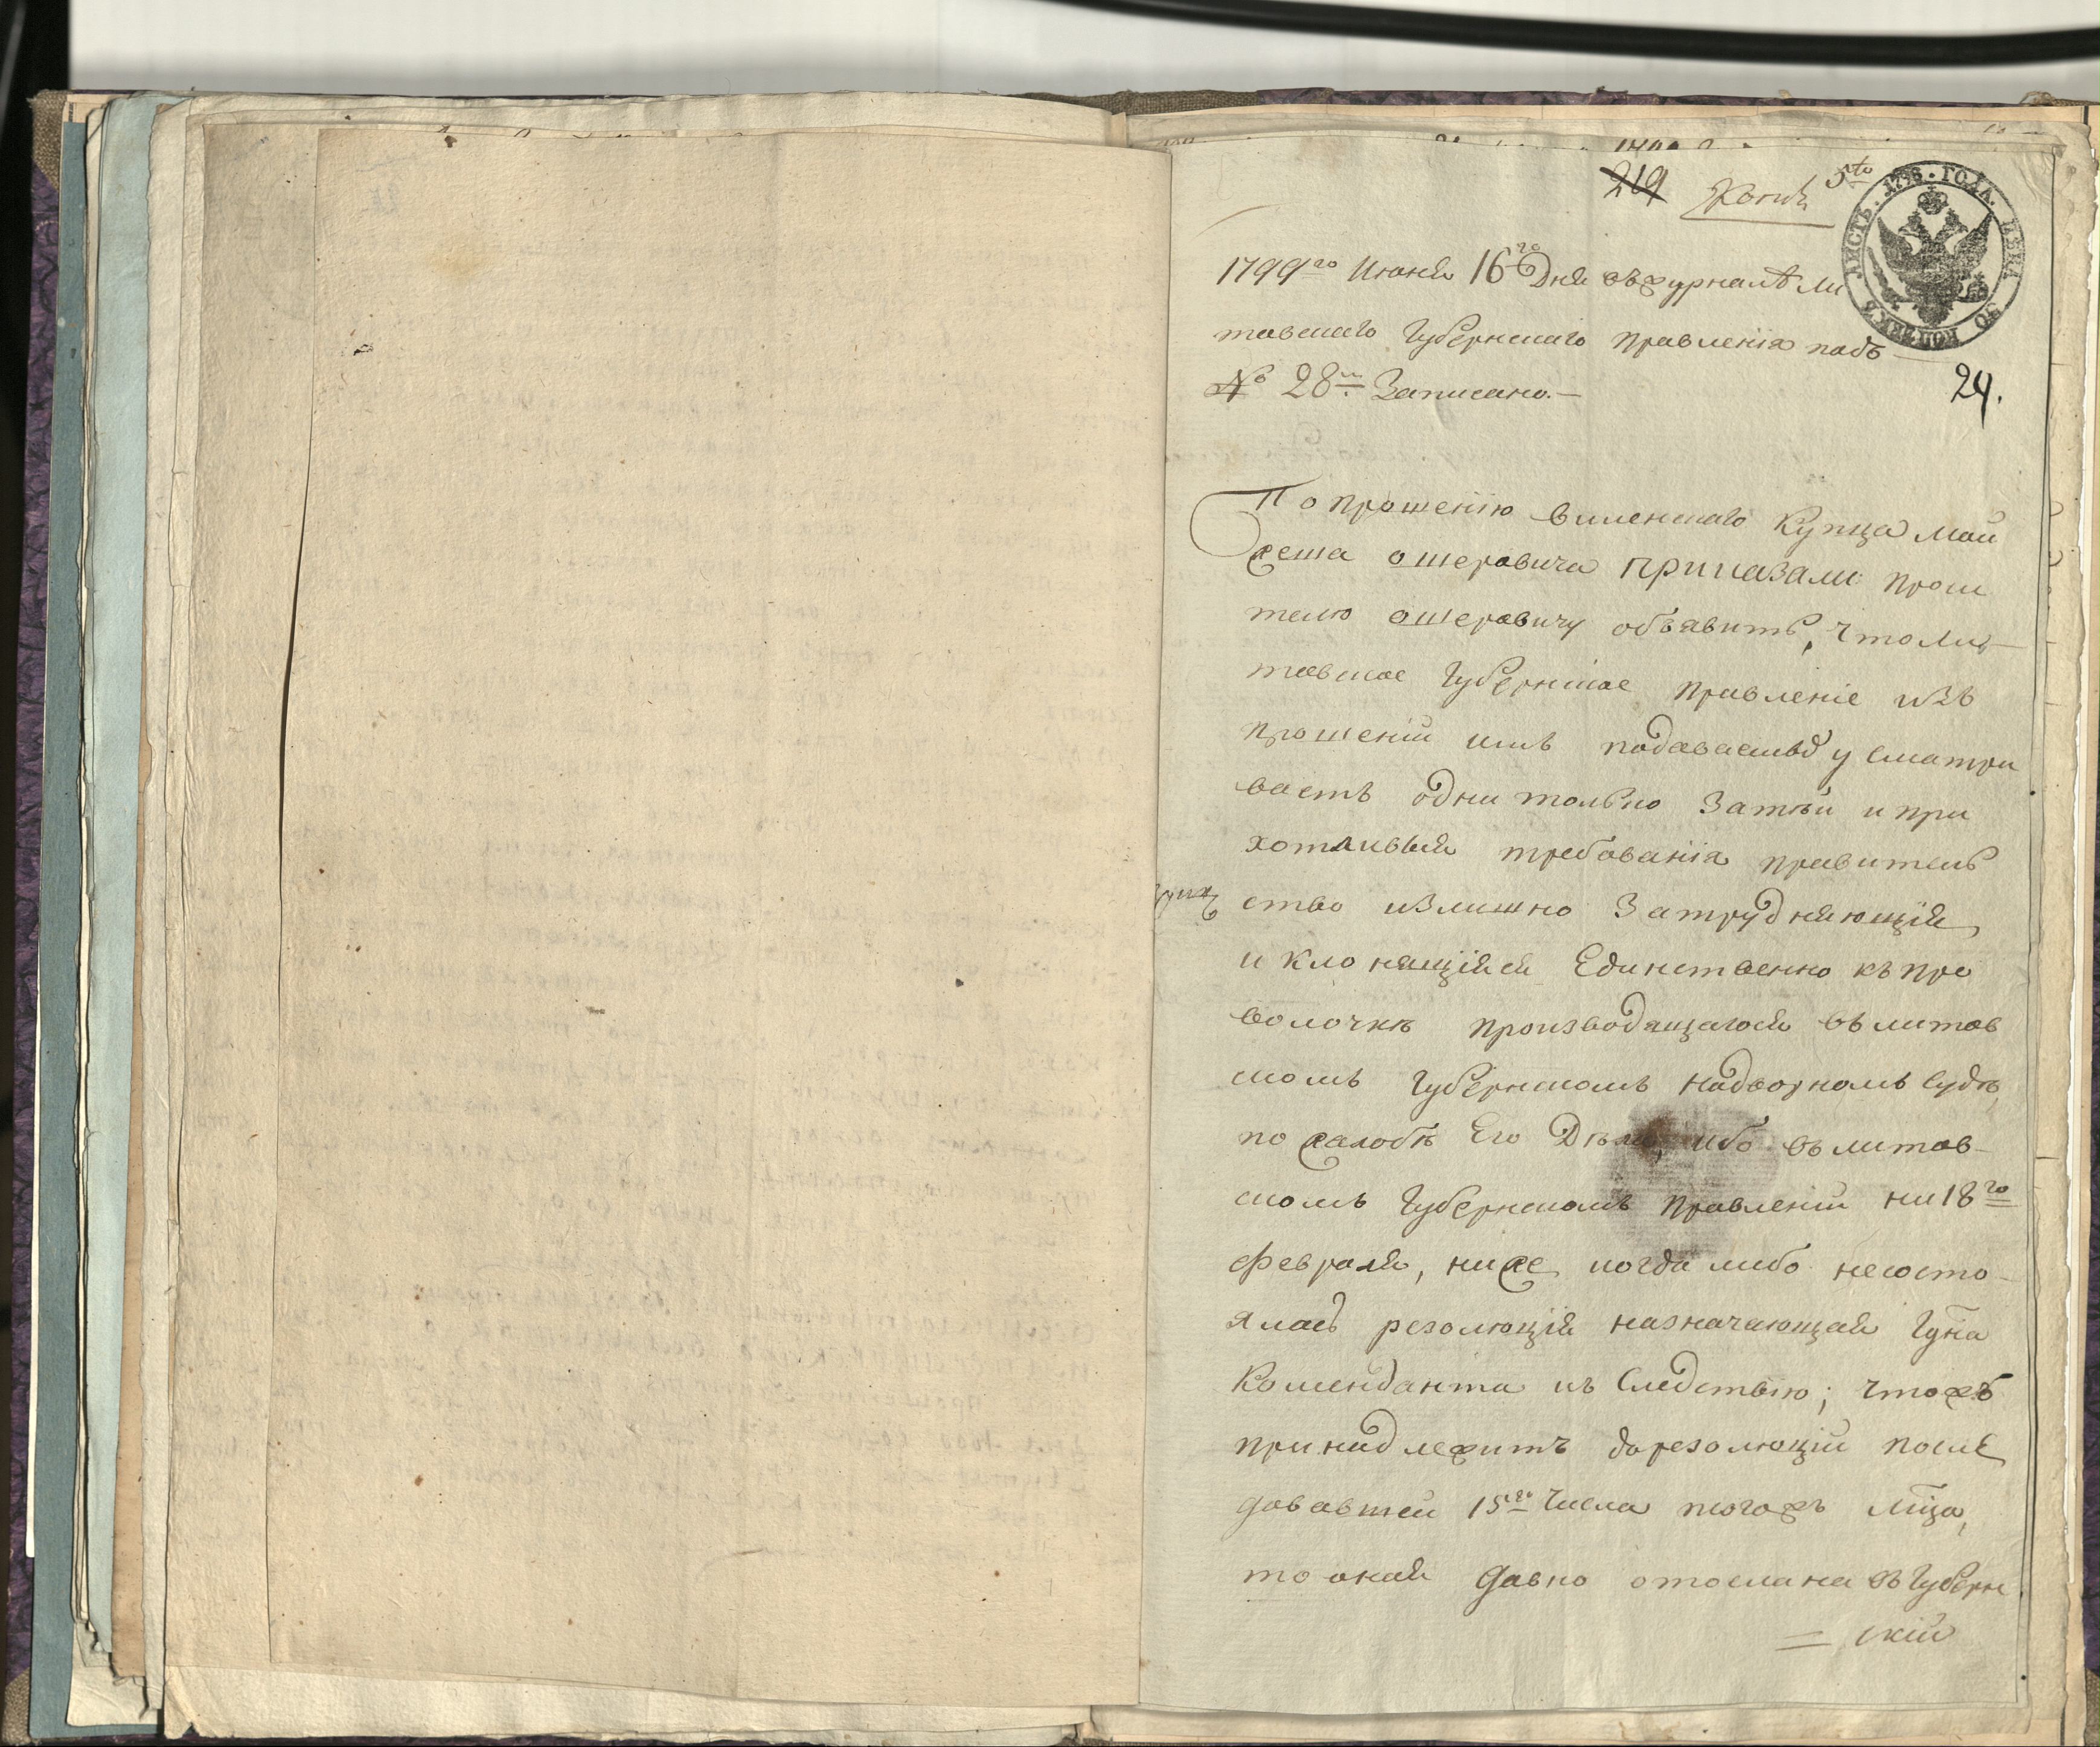 219 Копія 5то
ЛИСТЪ. 1796. ГОДА. ЦѢНА 30 КОПѢЕКЪ
1799го Июня 16го Дня въ журналѣ Ли
товскаго Губернскаго правленія подъ
№ 28м Записано. —
24.
По прошенію виленскаго Купца Мов
жеша ошеровича приказали проси
телю ошеровичу объявить, что Ли
товское Губернское правленіе изъ
прошеній имъ подаваемыхъ усматри
ваетъ одни только Затѣи и при
хотливыя требованія правитель
ство излишно Затрудняющія,
и клонящіяся Единственно къ про
волочкѣ производящагося въ литов
скомъ Губернскомъ надворномъ Судѣ,
по жалобѣ Его Дѣла, ибо въ литов
скомъ Губернскомъ правленіи ни 18го
февраля, ниже когда либо несосто
ялась резолюція назначающая Гдна
Коменданта къ Следствію; чтожъ
принадлежитъ дорезолюціи после
довавшей 15го Числа тогожъ Мца,
то оная давно отослана въ Губерн
= скій